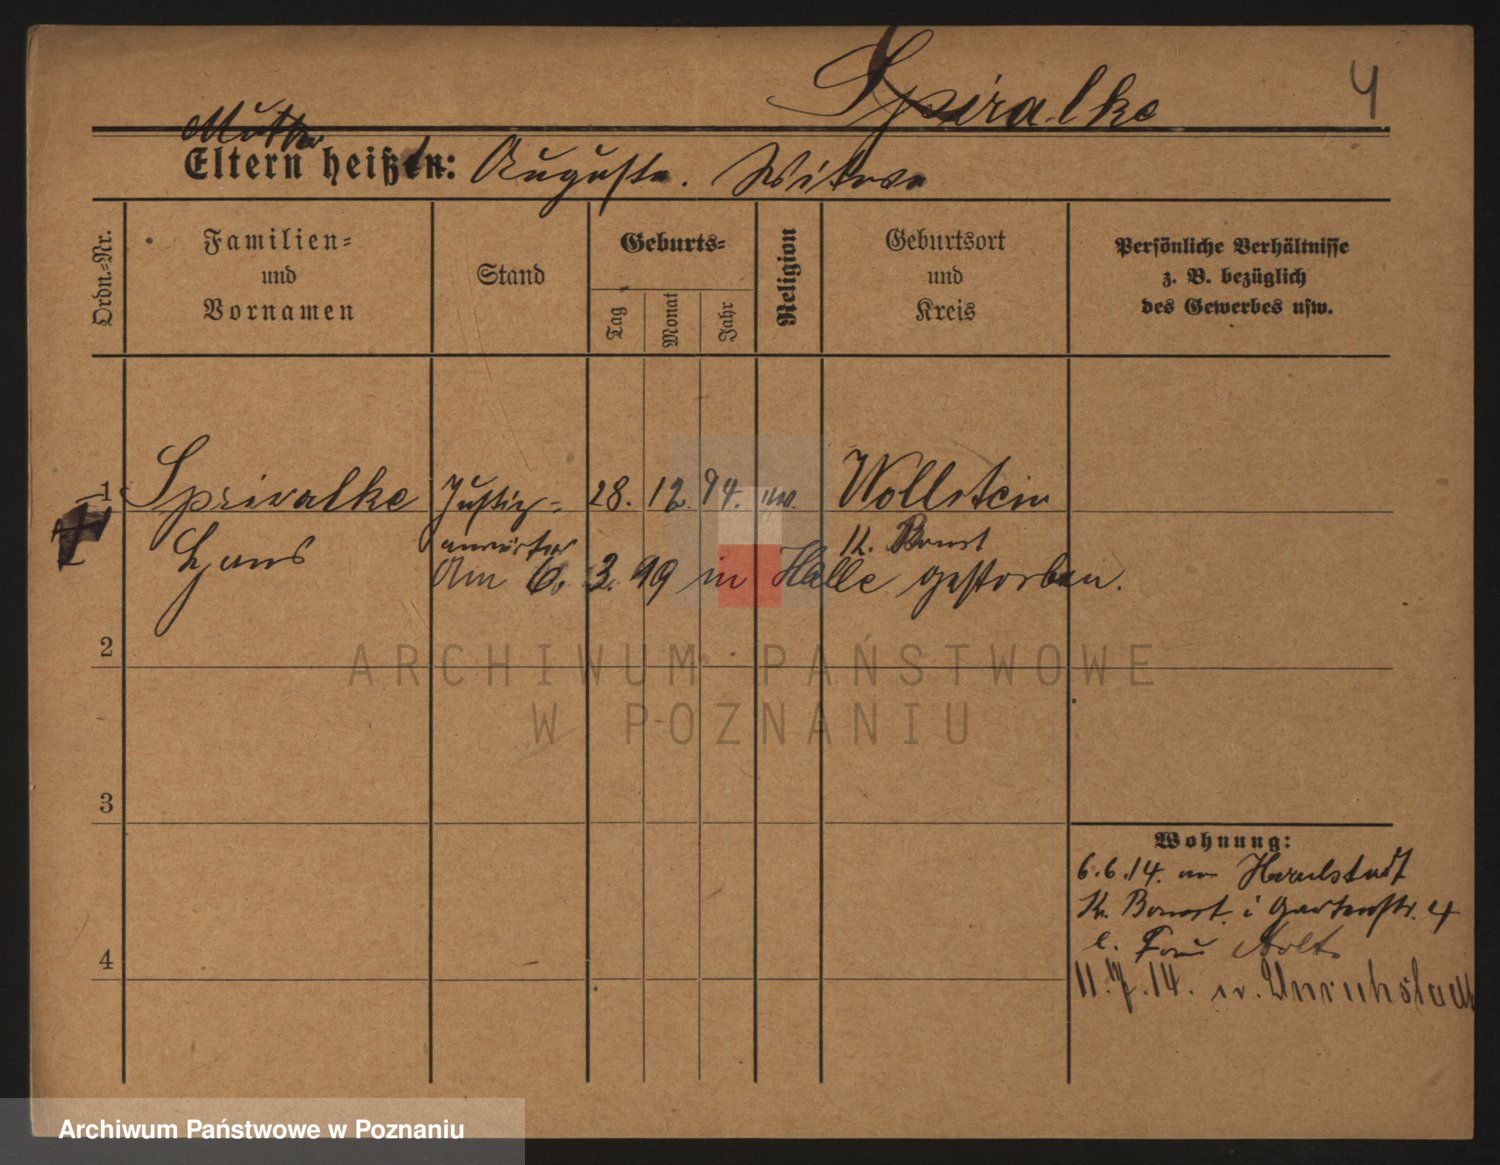 Spiralke 4
Mutter
Eltern heißen: Auguste. Witwe
Ordn.-Nr.
Familien-
und
Vornamen
Stand
Geburts-
Tag
Monat
Jahr
Religion
Geburtsort
und
Kreis
Persönliche Verhältnisse
z. B. bezüglich
des Gewerbes usw.
1 Spriralke Justiz- 28. 12. 94. Wollstein
Hans anwärter K. Bomst
Am 6. 3. 99 in Halle gestorben.
2
ARCHIWUM PAŃSTWOWE
W POZNANIU
3
Wohnung:
6.6.14. Unruhstadt
Kr. Bomst. Gartenstr. 4
Frau
4
11.7.14. Unruhstadt
Archiwum Państwowe w Poznaniu